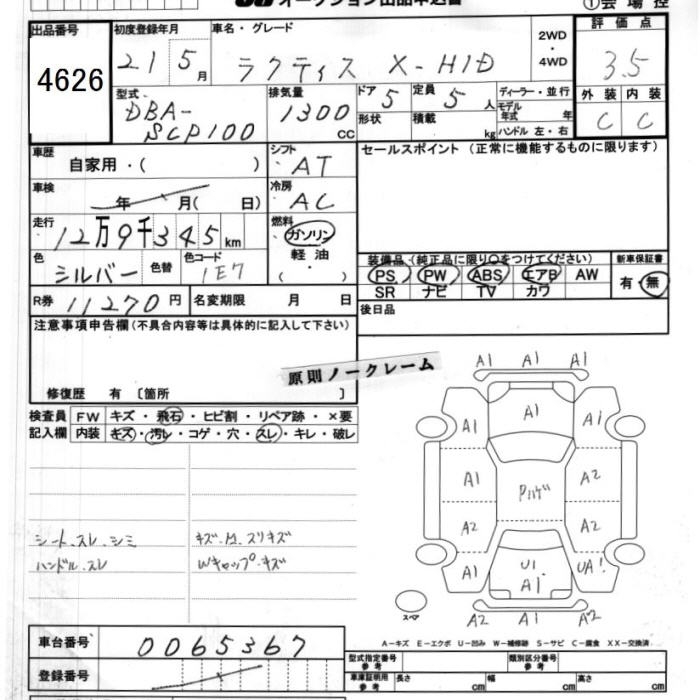 オークション出品申込書
①会場控
出品番号
4626
初度登録年月
21 5月
車名・グレード
ラクティス X-HID
2WD
・
4WD
評価点
3.5
外装 内装
C C
型式
DBA-
SCP100
排気量
1300
CC
ドア 5
定員 5人
形状
積載 kg
ディーラー・並行
モデル年式 年
ハンドル 左・右
車歴
自家用・( )
シフト
AT
セールスポイント (正常に機能するものに限ります)
車検
年 月( 日)
冷房
AC
走行
12万9千345km
燃料
ガソリン
軽油
( ・ )
色
シルバー
色替
色コード
1E7
装備品 (純正品に限り○をつけてください)
PS PW ABS エアB AW
SR ナビ TV カワ
新車保証書
有・無
R券 11270円
名変期限 月 日
後日品
注意事項申告欄 (不具合内容等は具体的に記入して下さい)
原則ノークレーム
修復歴 有 〔箇所 〕
検査員
記入欄
FW キズ・飛石・ヒビ割・リペア跡・×要
内装 キズ・汚レ・コゲ・穴・スレ・キレ・破レ
シート、スレ、シミ
ハンドル、スレ
Wキャップ・キズ
A1 A1 A1
A1 A1 A1
A1 A2
A2 A2
A1 U1 A1 UA!
A2 A1 A2
スペア
A-キズ E-エクボ U-凹み W-補修跡 S-サビ C-腐食 XX-交換済
車台番号 0065367
登録番号
型式指定番号
参考
類別区分番号
参考
車庫証明用
参考
長さ cm 幅 cm 高さ cm